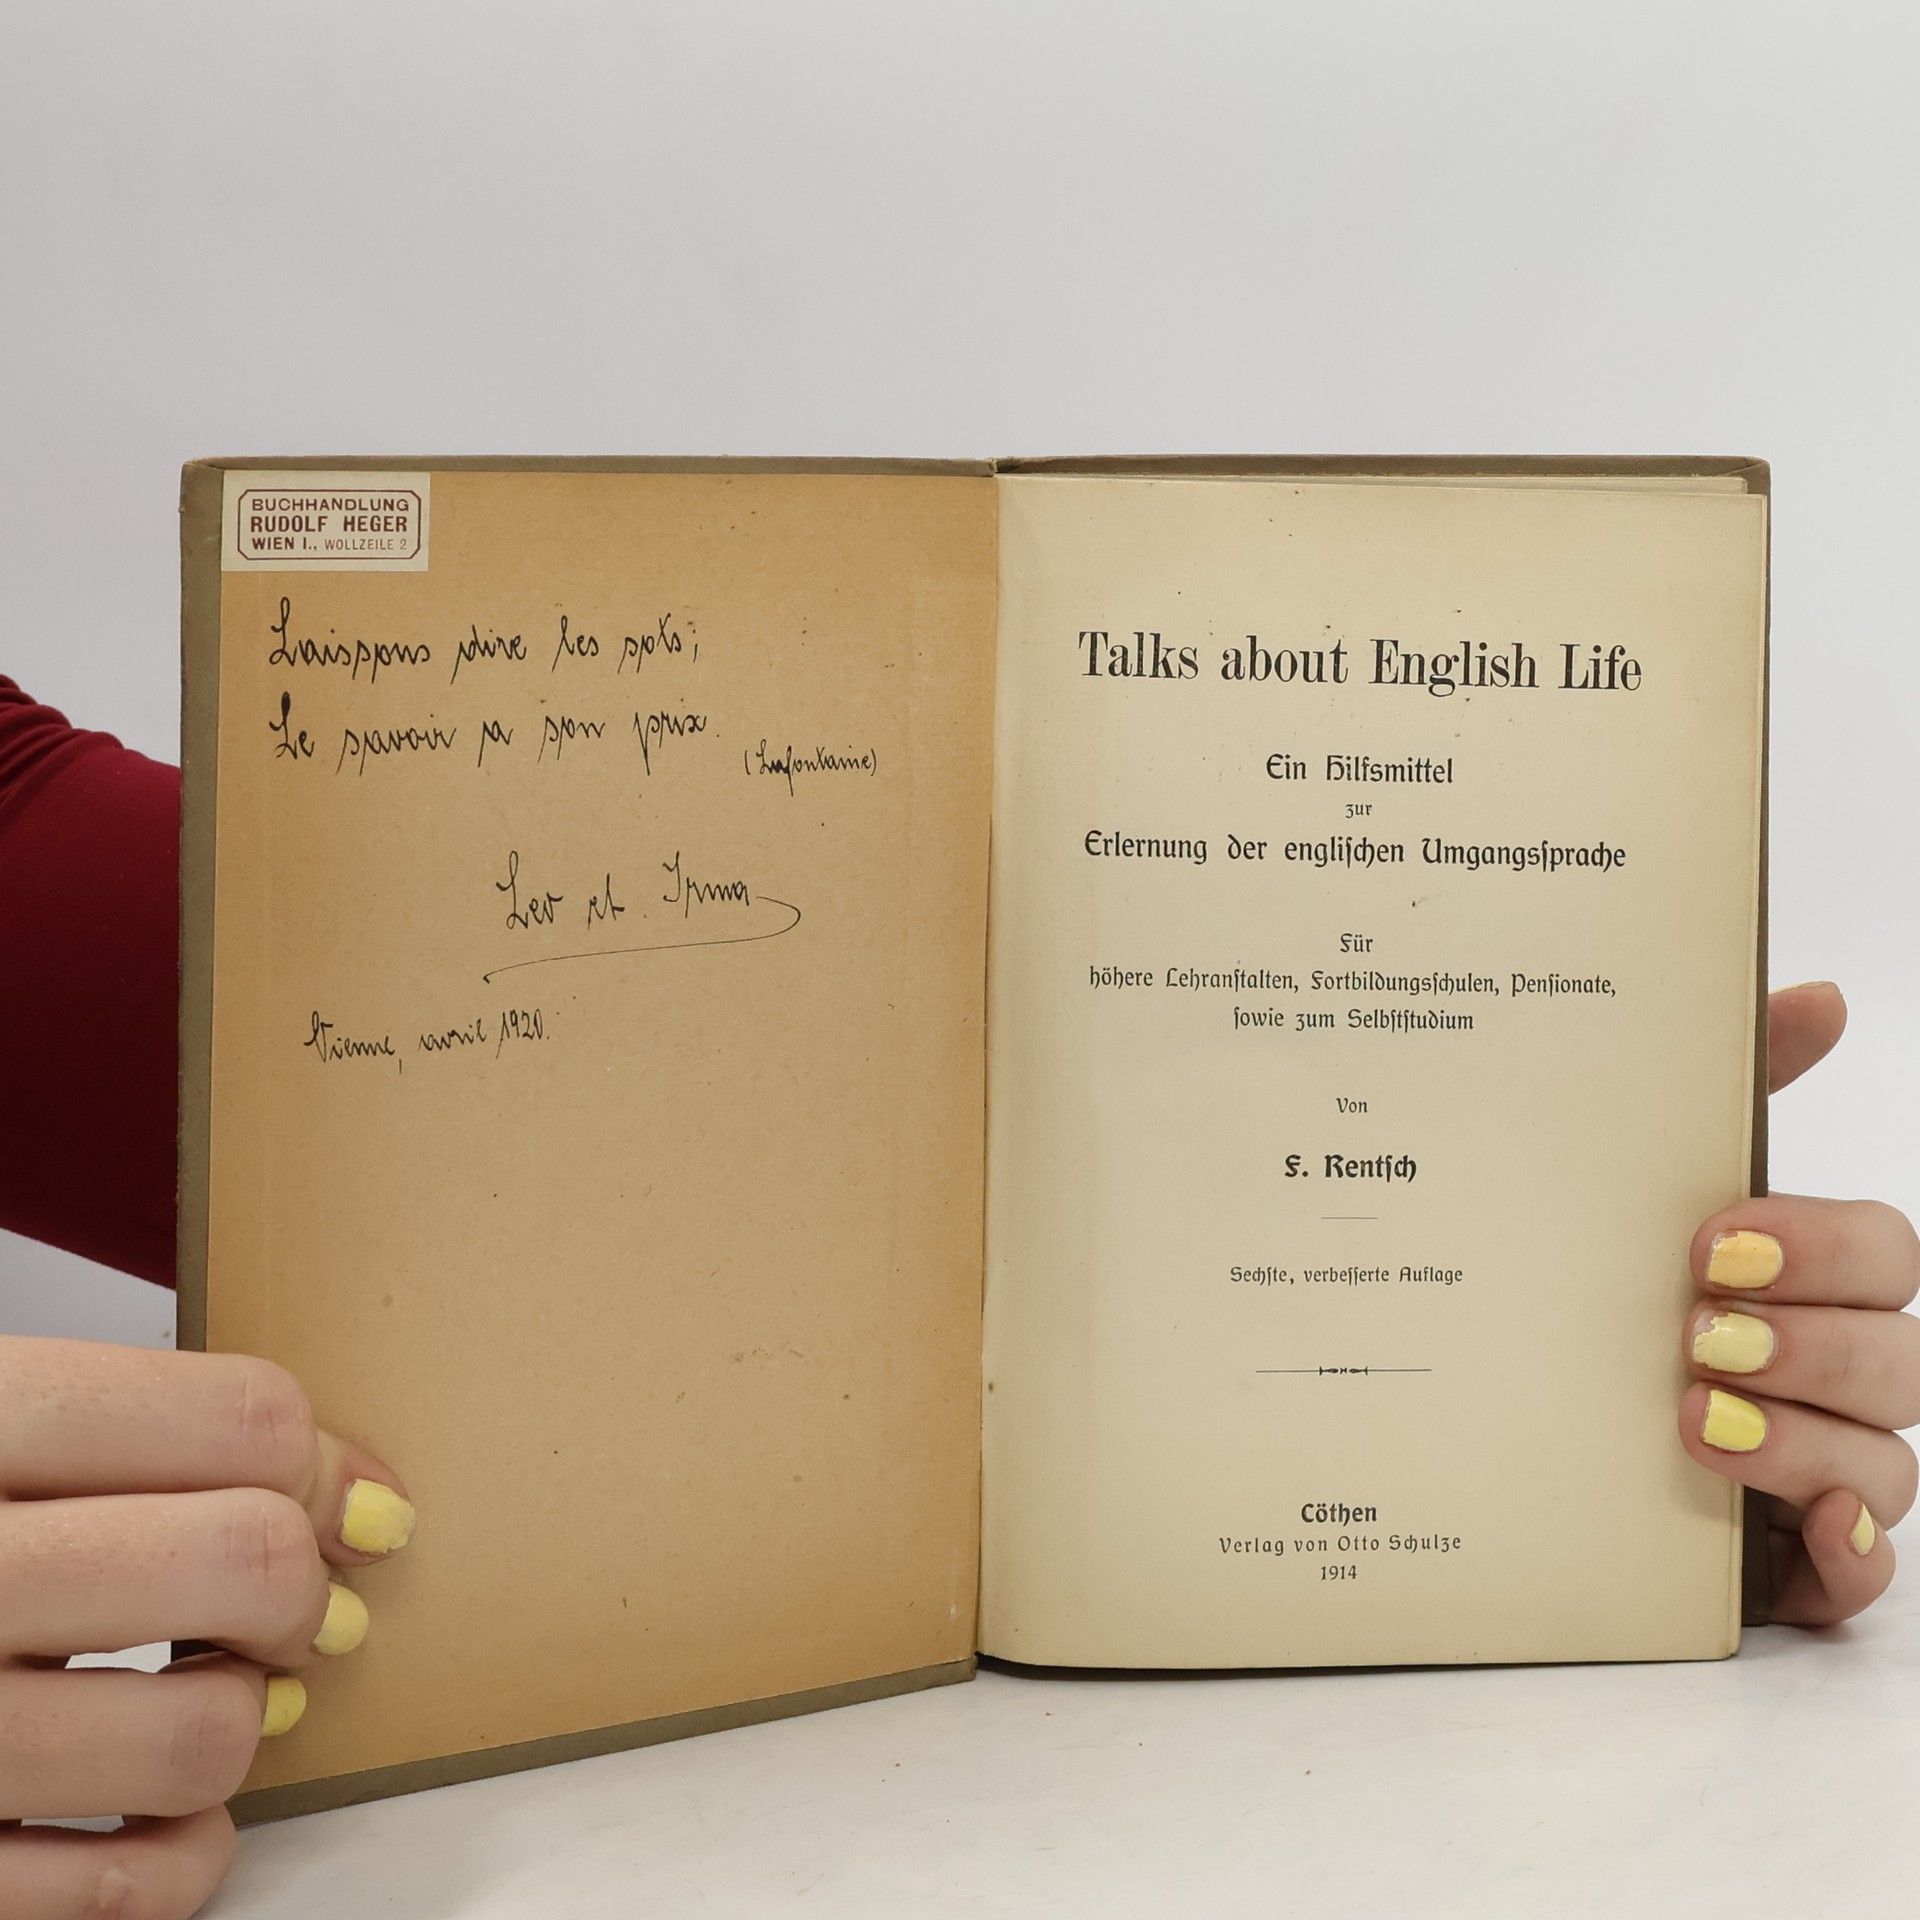 BUCHHANDLUNG
RUDOLF HEGER
WIEN I., WOLLZEILE 2
Laissons dire les sots;
Le savoir a son prix.
(Lafontaine)
Leo et Irma
Vienne, avril 1920.
Talks about English Life
Ein Hilfsmittel
zur
Erlernung der engliſchen Umgangsſprache
Für
höhere Lehranſtalten, Fortbildungsſchulen, Penſionate,
ſowie zum Selbſtſtudium
Von
F. Rentſch
Sechſte, verbeſſerte Auflage
Cöthen
Verlag von Otto Schulze
1914